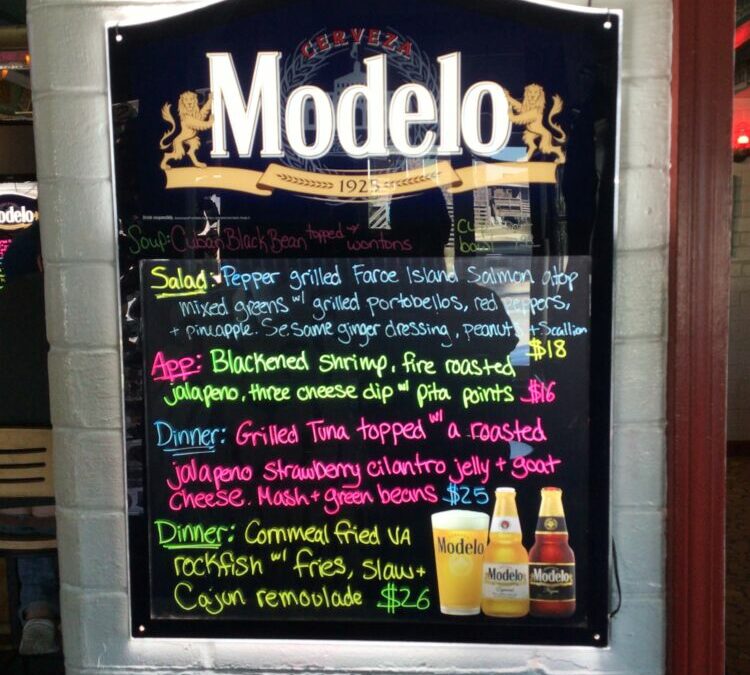 CERVEZA
Modelo
1925
Soup: Cuban Black Bean topped w/ wontons
bowl
Salad: Pepper grilled Faroe Island Salmon atop
mixed greens w/ grilled portobellos, red peppers,
+ pineapple. Sesame ginger dressing, peanuts + Scallion
$18
App: Blackened shrimp, fire roasted
jalapeno, three cheese dip w/ pita points $16
Dinner: Grilled Tuna topped w/ a roasted
jalapeno strawberry cilantro jelly + goat
cheese. Mash + green beans $25
Dinner: Cornmeal fried VA
rockfish w/ fries, slaw +
Cajun remoulade $26
Modelo
Modelo
Modelo